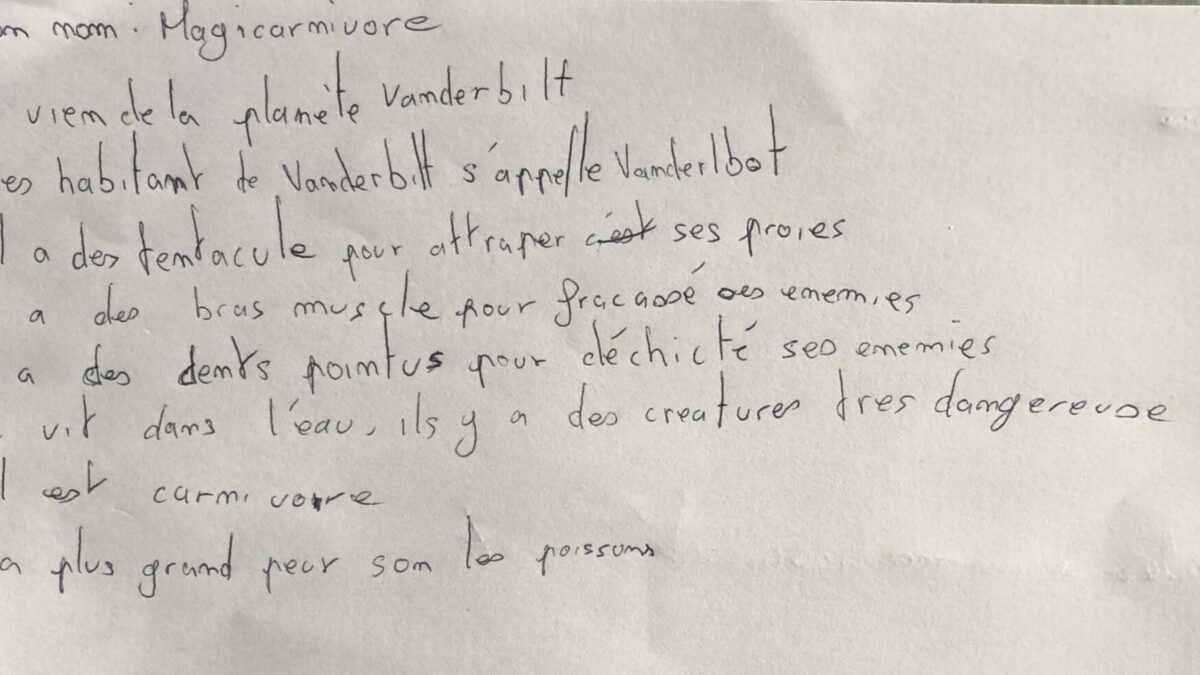 n nom : Magicarnivore
vien de la planète Vanderbilt
es habitant de Vanderbilt s'appelle Vanderlbot
l a des tentacule pour attraper c'est ses proies
a des bras muscle pour fracassé ses enemies
a des dents pointus pour déchicté ses enemies
vit dans l'eau, ils y a des creatures tres dangereuse
l est carnivore
a plus grand peur son les poissons